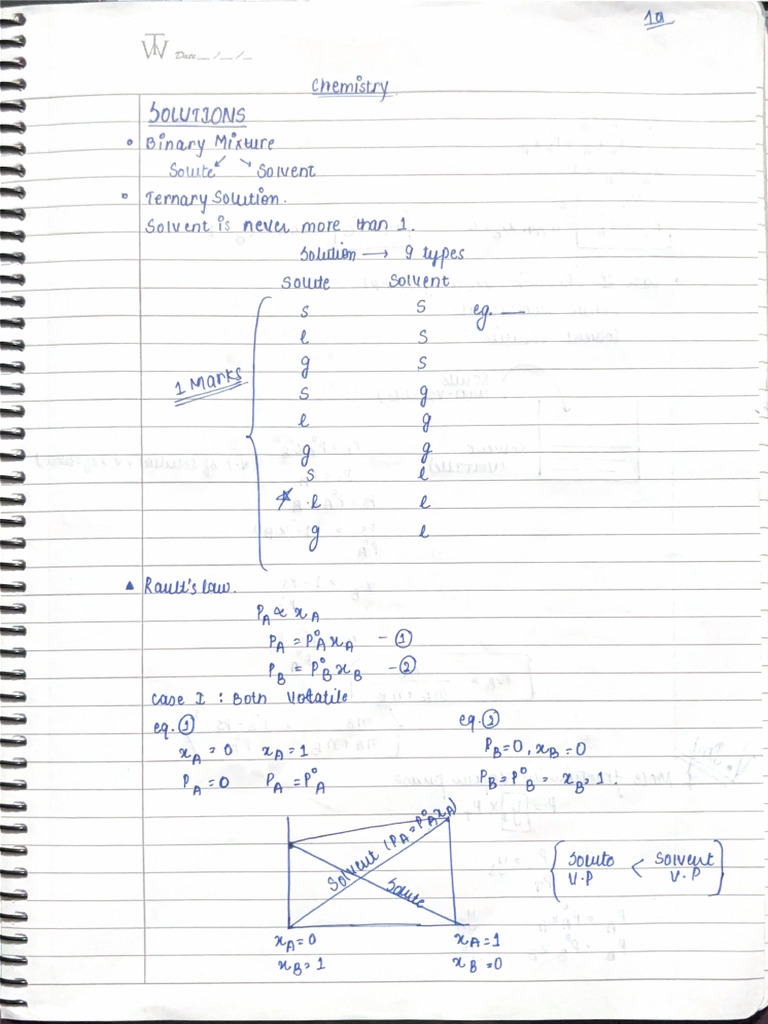 1a
TW Date__/__/__
Chemistry
SOLUTIONS
• Binary Mixture
Solute ↙ ↘ Solvent
• Ternary Solution.
Solvent is never more than 1.
Solution → 9 types
Solute Solvent
s s eg. —
l s
g s
1 Marks
s g
l g
g g
s l
l l
g l
▲ Rault's law.
P_A ∝ x_A
P_A = P°_A x_A - ①
P_B = P°_B x_B - ②
Case I : Both Volatile
eq. ① eq. ②
x_A = 0 x_A = 1 P_B = 0, x_B = 0
P_A = 0 P_A = P°_A P_B = P°_B - x_B = 1.
Solvent (P_A = P°_A x_A)
Solute
Solute < Solvent
V.P V.P
x_A = 0 x_A = 1
x_B = 1 x_B = 0